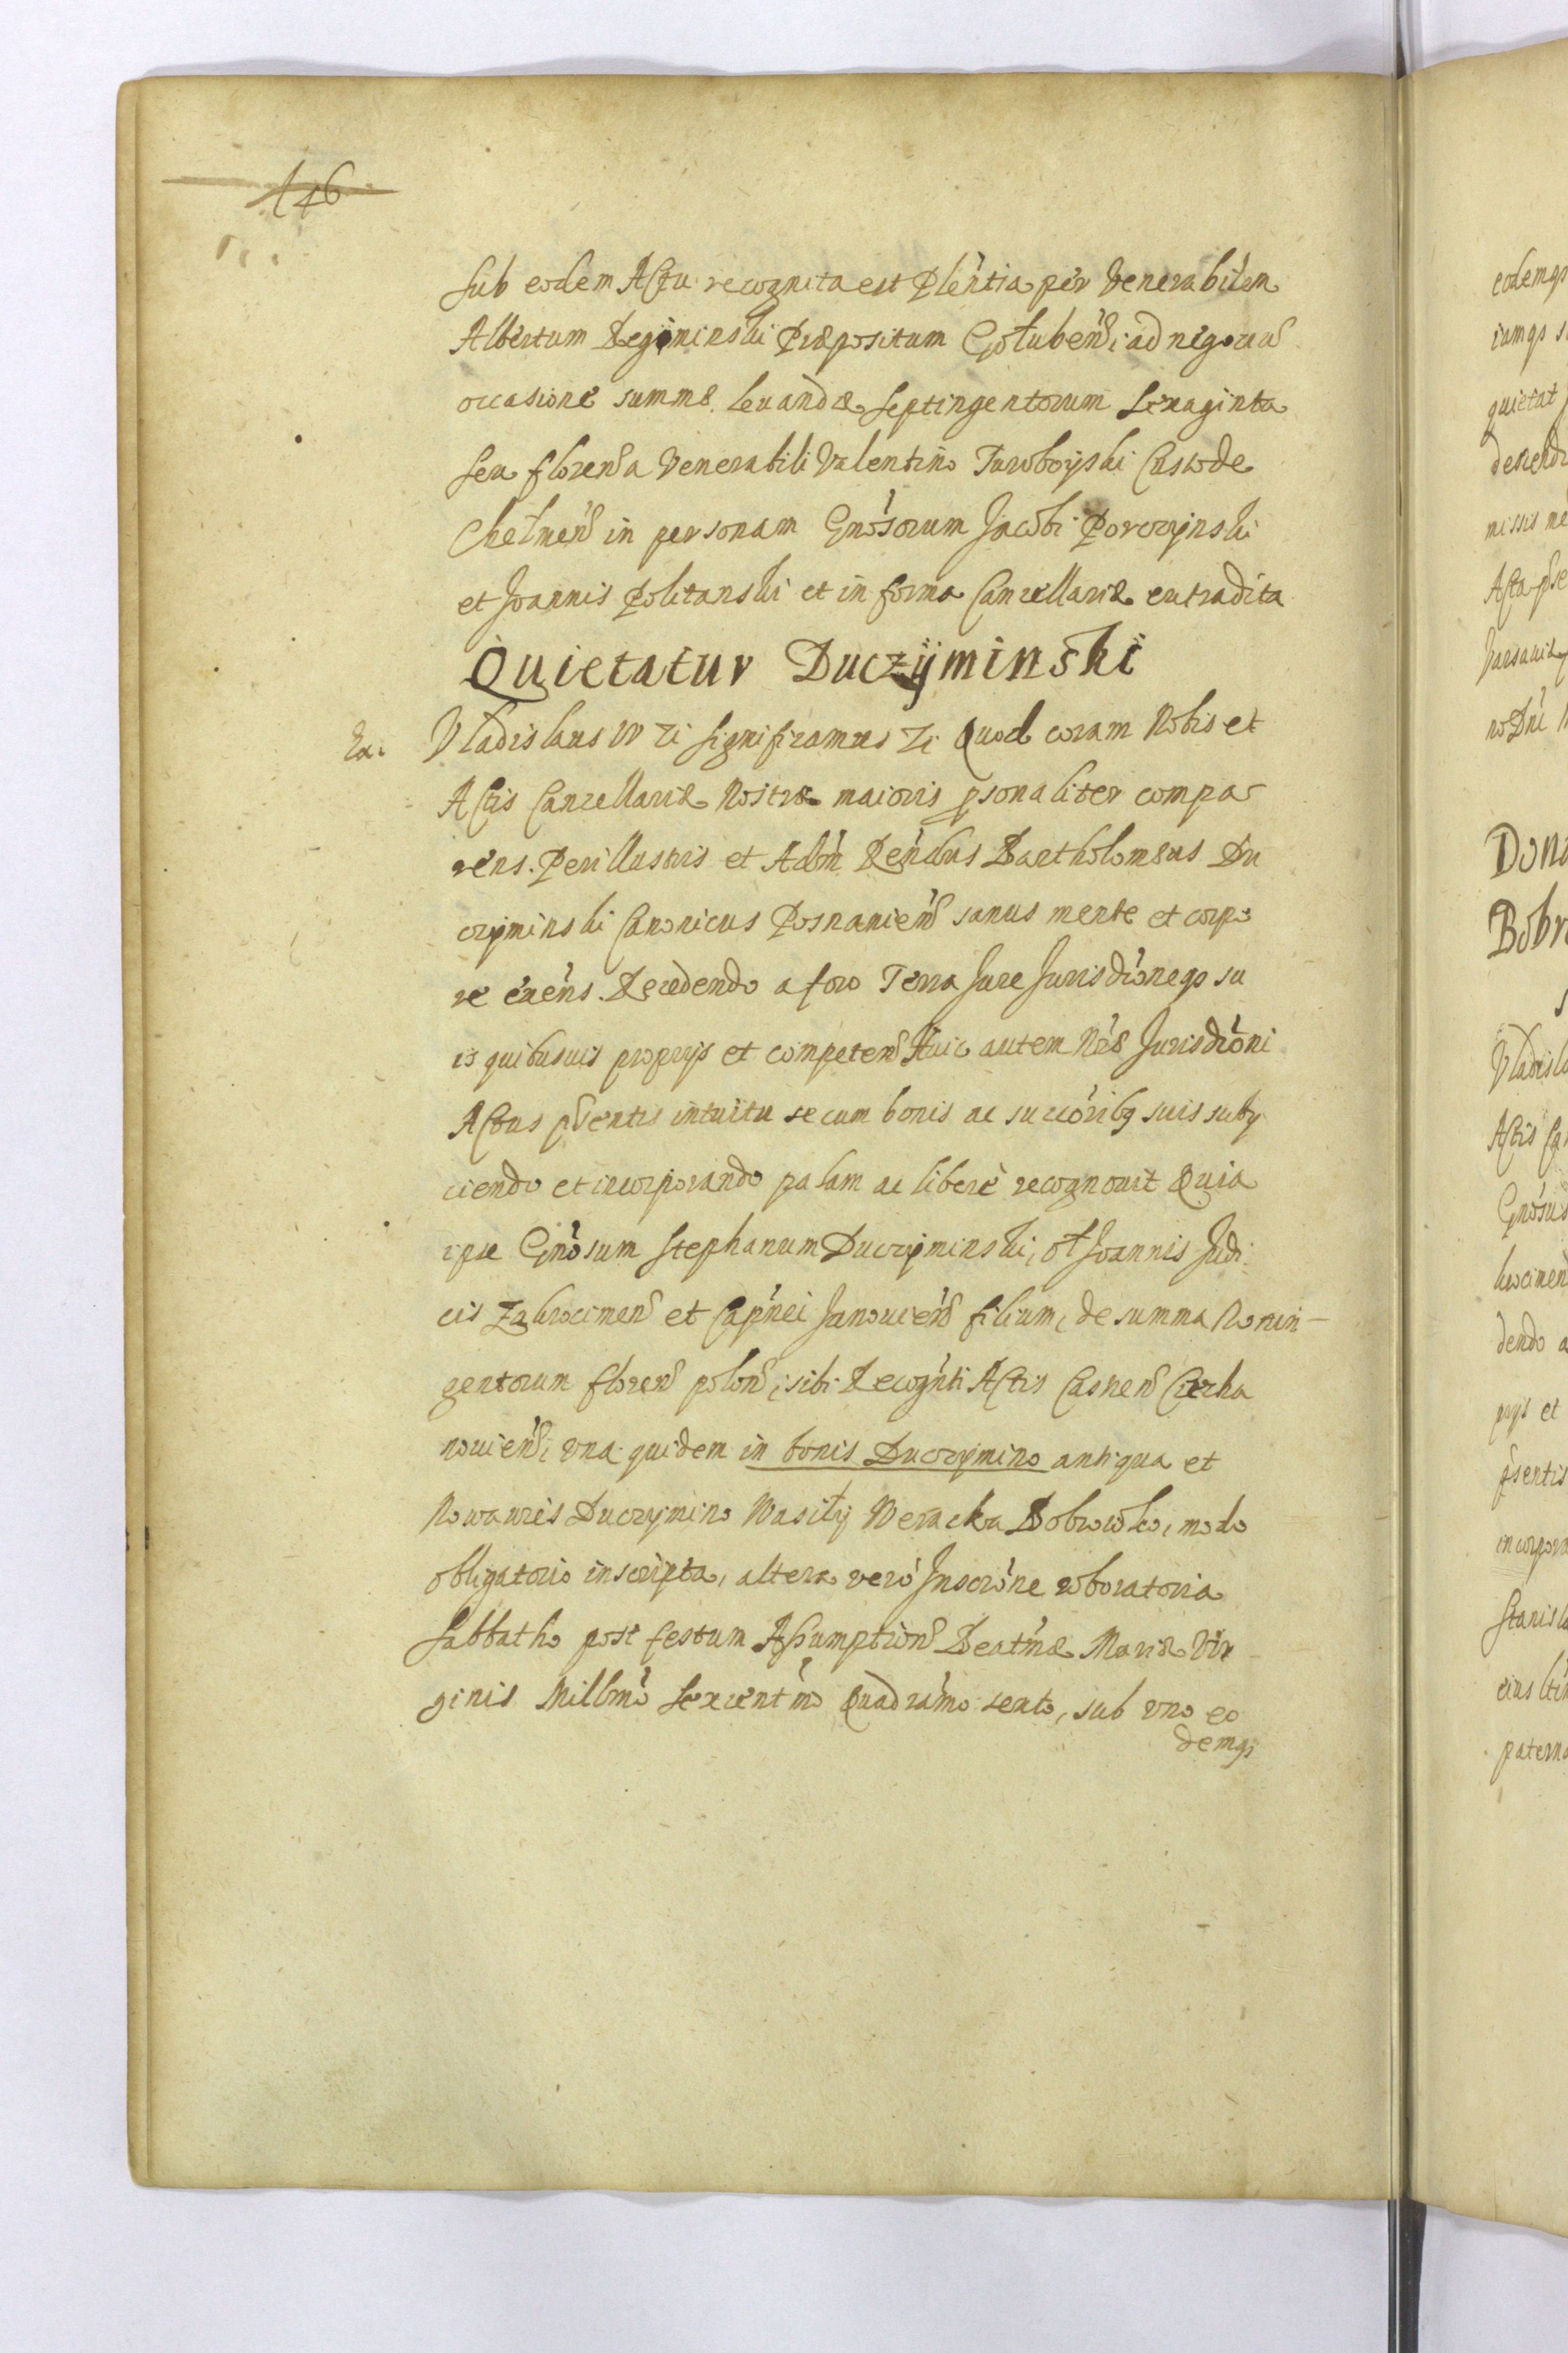 146
Sub eodem Actu recognita est Plentia per Venerabilem
Albertum Regiminski Præpositum Gołubens; ad
occasione summæ levandæ Septingentorum Sexaginta
Sex floren a Venerabili Valentino Turoboyski Custode
Chełmen in personam Gnosorum Jacobi Poroczynski
et Joannis Politanski et in forma Cancellariæ extradita
Quietatur Duczÿminski
Ex.
Vladislaus IV Zi significamus Zi Quod coram Nobis et
Actis Cancellariæ Nostræ maioris psonaliter compa
rens. Perillustris et Adm Rendus Bartholomæus Du
czyminski Canonicus Posnanien sanus mente et corpo
re exens. Recedendo a foro Terra Jure Jurisdioneqз su
is quibusuis proprijs et competen Huic autem Nræ Jurisdioni
Actus pntis intuitu se cum bonis ac succoribз suis subij
ciendo et incorporando palam ac libere recognouit Quia
ipse Gnosum Stephanum Duczyminski, ol Joannis Judi
cis Zakrocimen et Capnei Janouien filium, de summa Nonin-
gentorum floren polon; sibi Recognti Actis Casnen Ciecha
nouien; una quidem in bonis Duczymino antiqua et
Nowawies Duczymino Wasiły Weracka Dobrowko, modo
obligatorio inscripta, altera vero Inscrione roboratoria
Sabbatho post festum Assumption Beatmæ Mariæ Vir
ginis Millmo Sexcentmo Quadramo sexto, sub uno eo
demqз
eodemqз
iamqз
quietat
missis ne
Acta
Dona
Bobr
Vladisla
Actis Ca
Gnosus
dendo a
et
psentis
incorpora
Stanisla
paterna